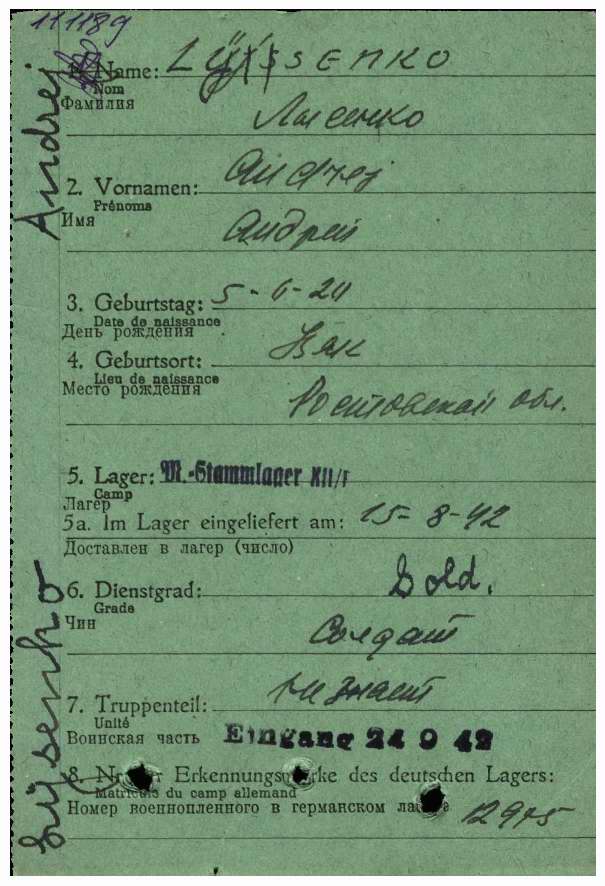 111189
1. Name: Lyssenko
Nom
Фамилия
Лисенко
Andrej
2. Vornamen:
Prénoms
Имя
Андрей
3. Geburtstag: 5-6-20
Date de naissance
День рождения
4. Geburtsort:
Lieu de naissance
Место рождения
Ростовской обл.
5. Lager: M.-Stammlager XII/F
Camp
Лагер
5a. Im Lager eingeliefert am: 15-8-42
Доставлен в лагер (число)
6. Dienstgrad: Sold.
Grade
Чин
Солдат
7. Truppenteil: не знает
Unité
Воинская часть
Eingang 24 9 42
8. Nr. der Erkennungsmarke des deutschen Lagers:
Matricule du camp allemand
Номер военнопленного в германском лагере 12975
Lÿsenko Andrej